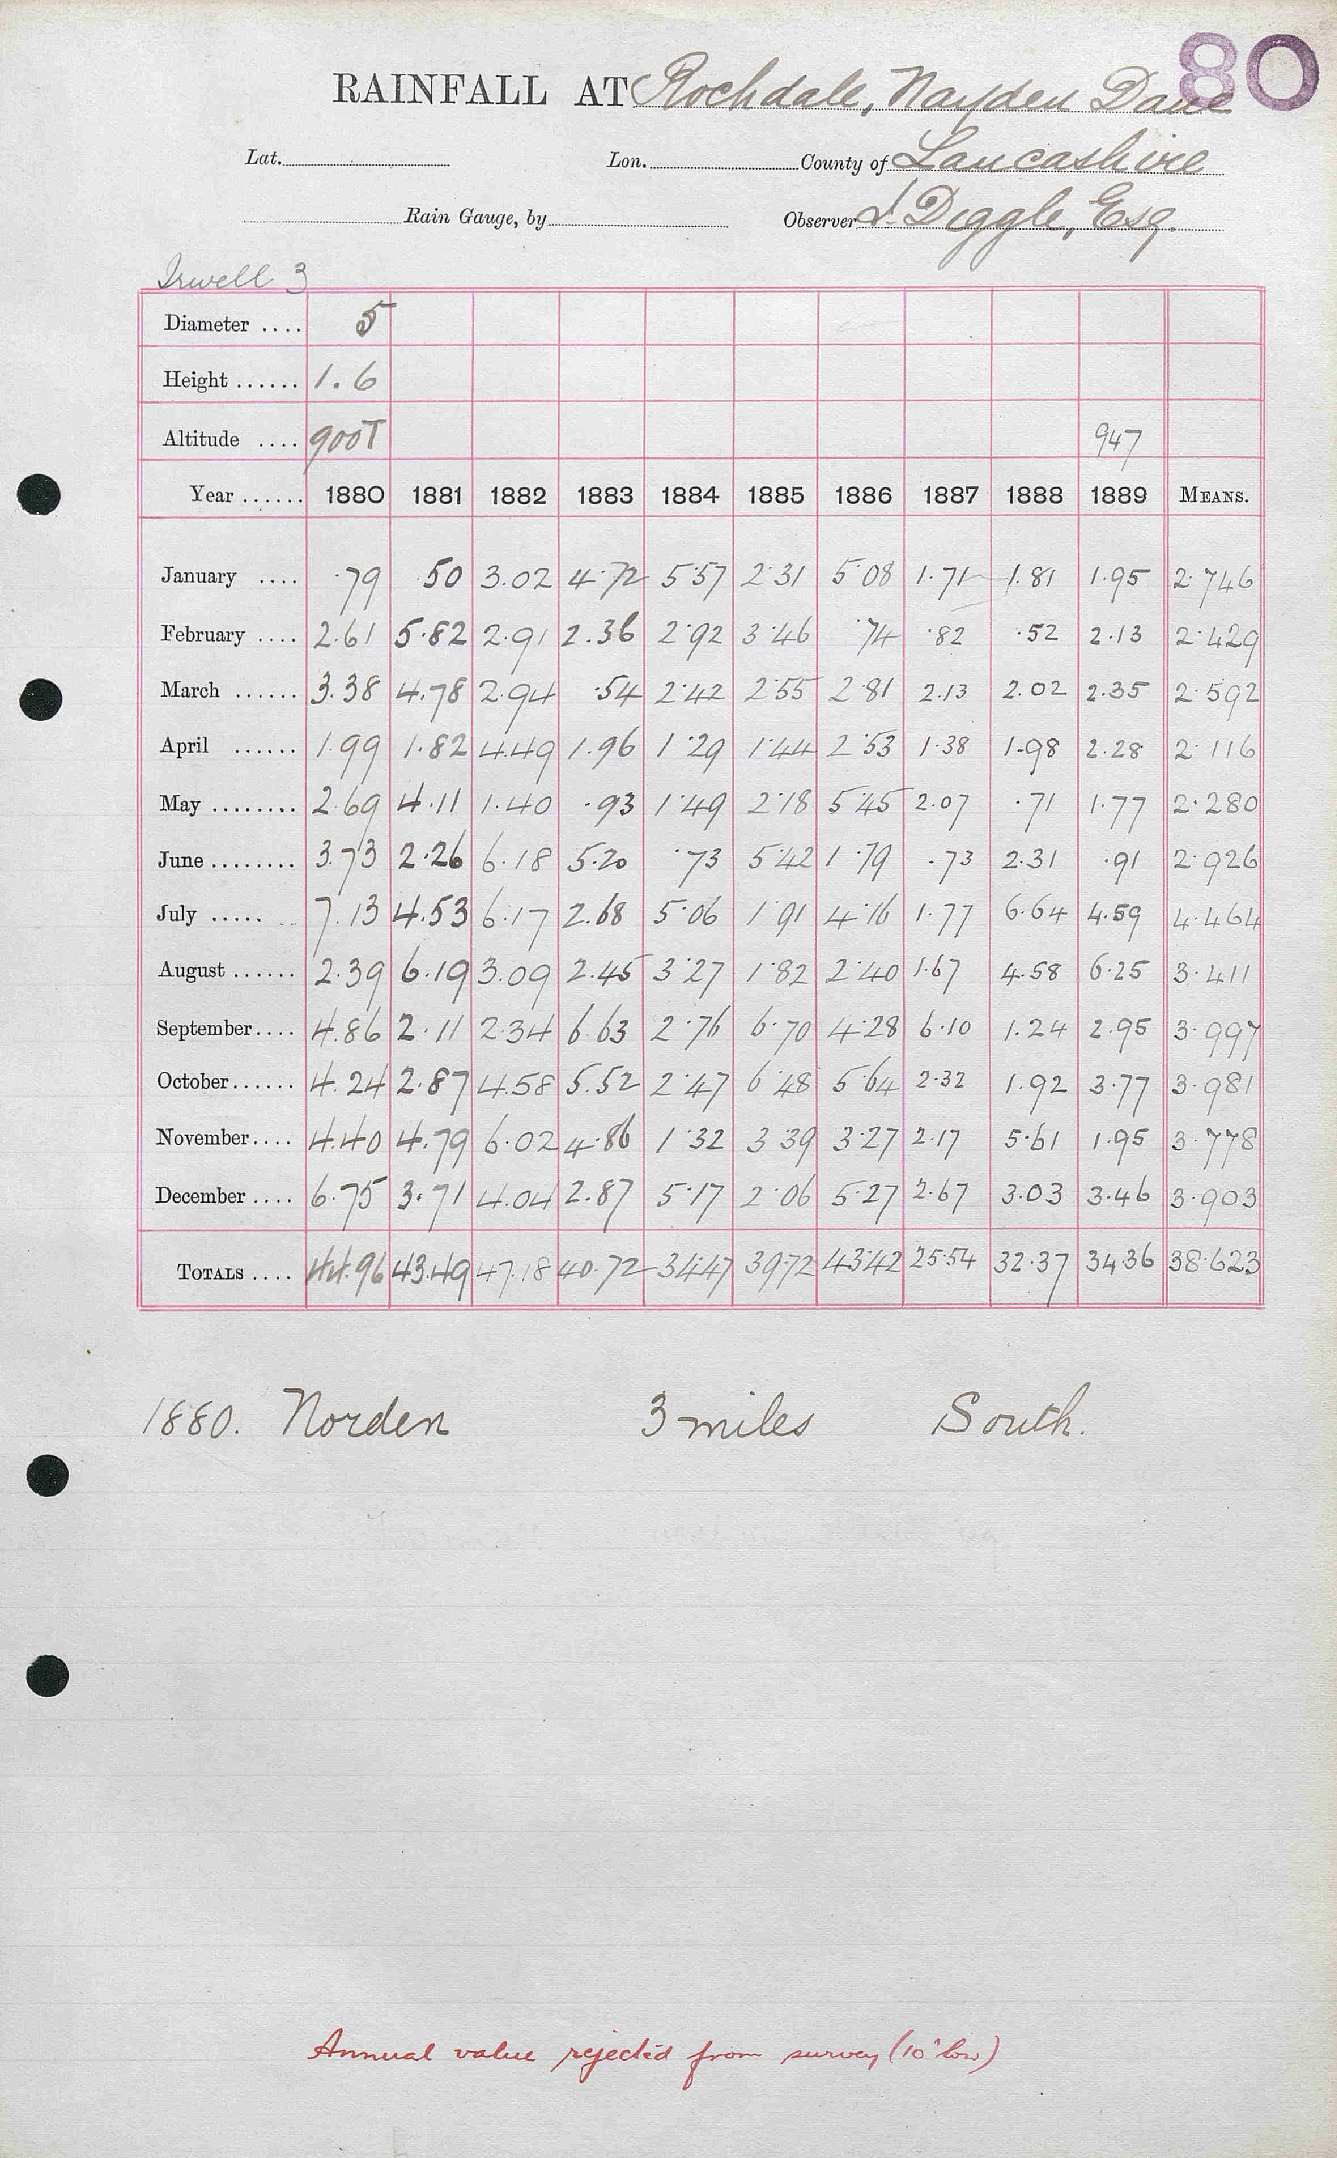 80
RAINFALL AT Rochdale, Nayden Dane
Lat. Lon. County of Lancashire
Rain Gauge, by Observer J. Diggle, Esq.
Irwell 3
Diameter .... 5
Height ...... 1.6
Altitude .... 900T 947
Year ...... 1880 1881 1882 1883 1884 1885 1886 1887 1888 1889 MEANS.
January .... .79 .50 3.02 4.72 5.57 2.31 5.08 1.71 1.81 1.95 2.746
February .... 2.61 5.82 2.91 2.36 2.92 3.46 .74 .82 .52 2.13 2.429
March ...... 3.38 4.78 2.94 .54 2.42 2.55 2.81 2.13 2.02 2.35 2.592
April ...... 1.99 1.82 4.49 1.96 1.29 1.44 2.53 1.38 1.98 2.28 2.116
May ........ 2.69 4.11 1.40 .93 1.49 2.18 5.45 2.07 .71 1.77 2.280
June ........ 3.73 2.26 6.18 5.20 .73 5.42 1.79 .73 2.31 .91 2.926
July ..... 7.13 4.53 6.17 2.68 5.06 1.91 4.16 1.77 6.64 4.59 4.464
August ...... 2.39 6.19 3.09 2.45 3.27 1.82 2.40 1.67 4.58 6.25 3.411
September.... 4.86 2.11 2.34 6.63 2.76 6.70 4.28 6.10 1.24 2.95 3.997
October...... 4.24 2.87 4.58 5.52 2.47 6.48 5.64 2.32 1.92 3.77 3.981
November.... 4.40 4.79 6.02 4.86 1.32 3.39 3.27 2.17 5.61 1.95 3.778
December .... 6.75 3.71 4.04 2.87 5.17 2.06 5.27 2.67 3.03 3.46 3.903
TOTALS .... 44.96 43.49 47.18 40.72 34.47 39.72 43.42 25.54 32.37 34.36 38.623
1880. Norden 3 miles South.
Annual value rejected from survey (10" low)